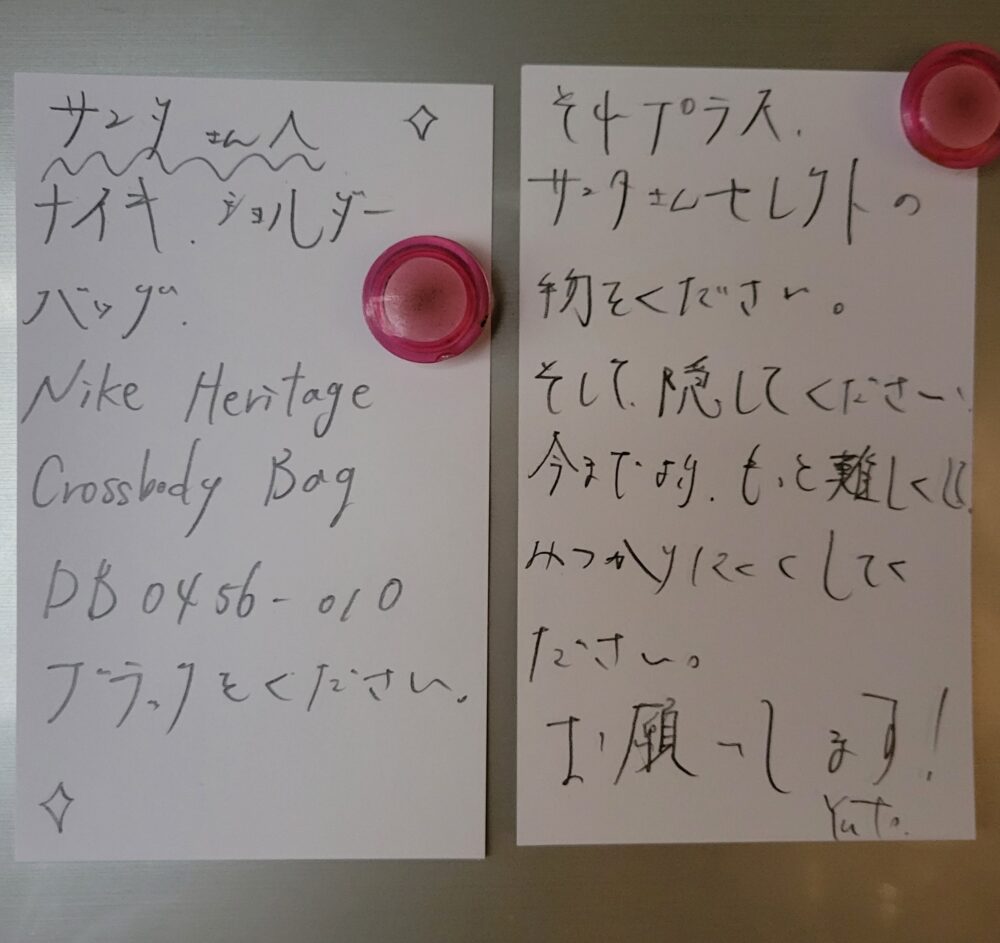 サンタさんへ
ナイキ.ショルダー
バッグ.
Nike Heritage
Crossbody Bag
DB0456-010
ブラックをください。
それプラス.
サンタさんセレクトの
物をください。
そして.隠してください.
今までより.もっと難しく
みつかりにくくしてく
ださい。
お願いします!
Yuto.